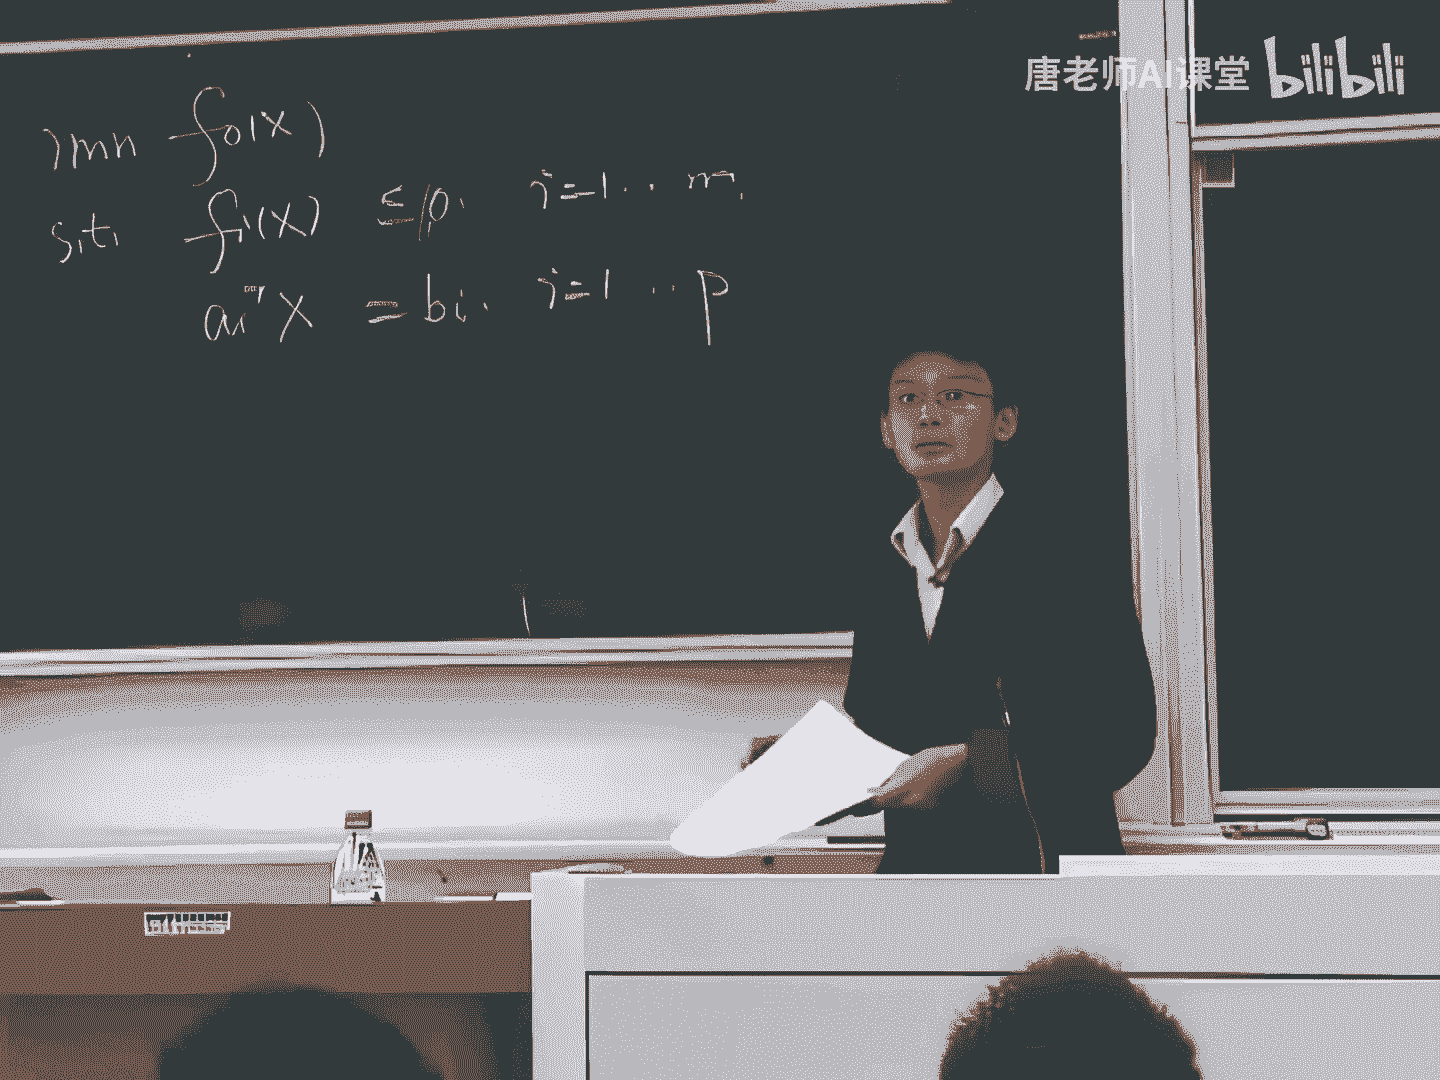 唐老师AI课堂 bilibili
min f₀(x)
s.t. fᵢ(x) ≤ 0. i=1 .. m.
aᵢᵀx = bᵢ. i=1 .. p